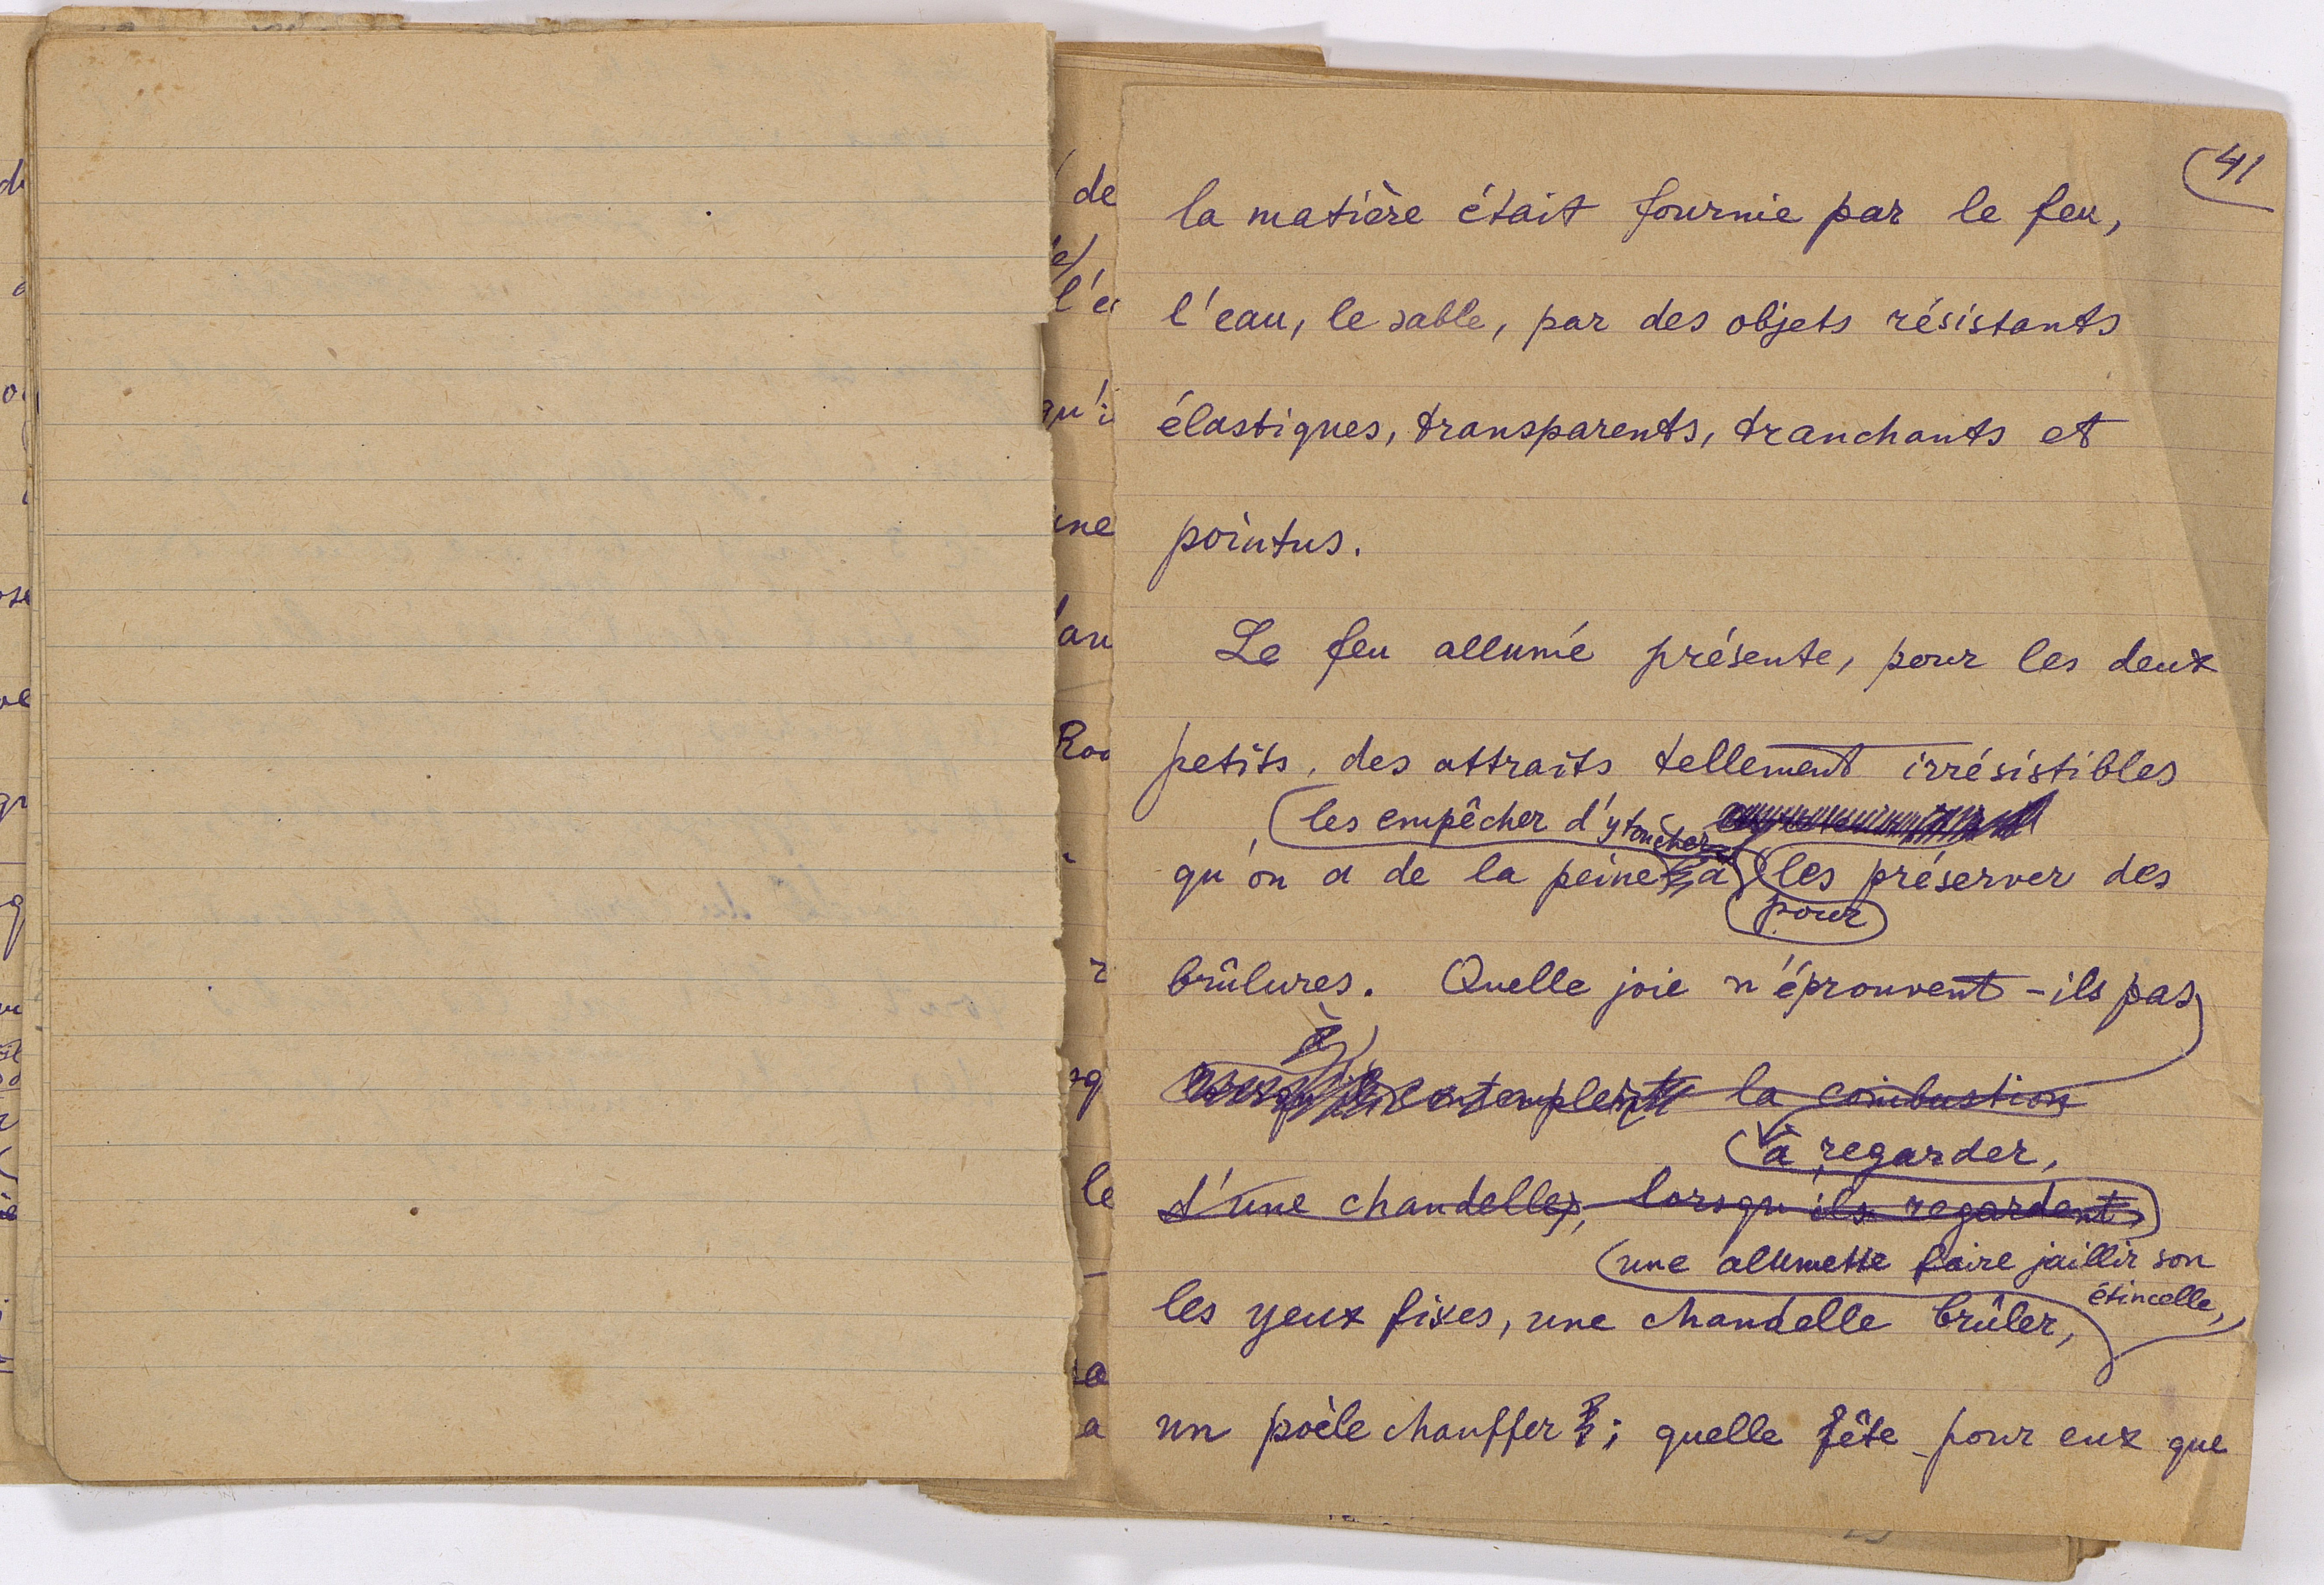 41
la matière était fournie par le feu,
l'eau, le sable, par des objets résistants
élastiques, transparents, tranchants et
pointus.
Le feu allumé présente, pour les deux
petits, des attraits tellement irrésistibles
les empêcher d'y toucher
qu'on a de la peine à les préserver des
pour
brûlures. Quelle joie n'éprouvent-ils pas
à
contemplent la combustion
à regarder,
d'une chandelle, lorsqu'ils regardent,
une allumette faire jaillir son
étincelle,
les yeux fixes, une chandelle brûler,
un poèle chauffer; quelle fête pour eux que
de
l'e
qu'i
une
Roo
le